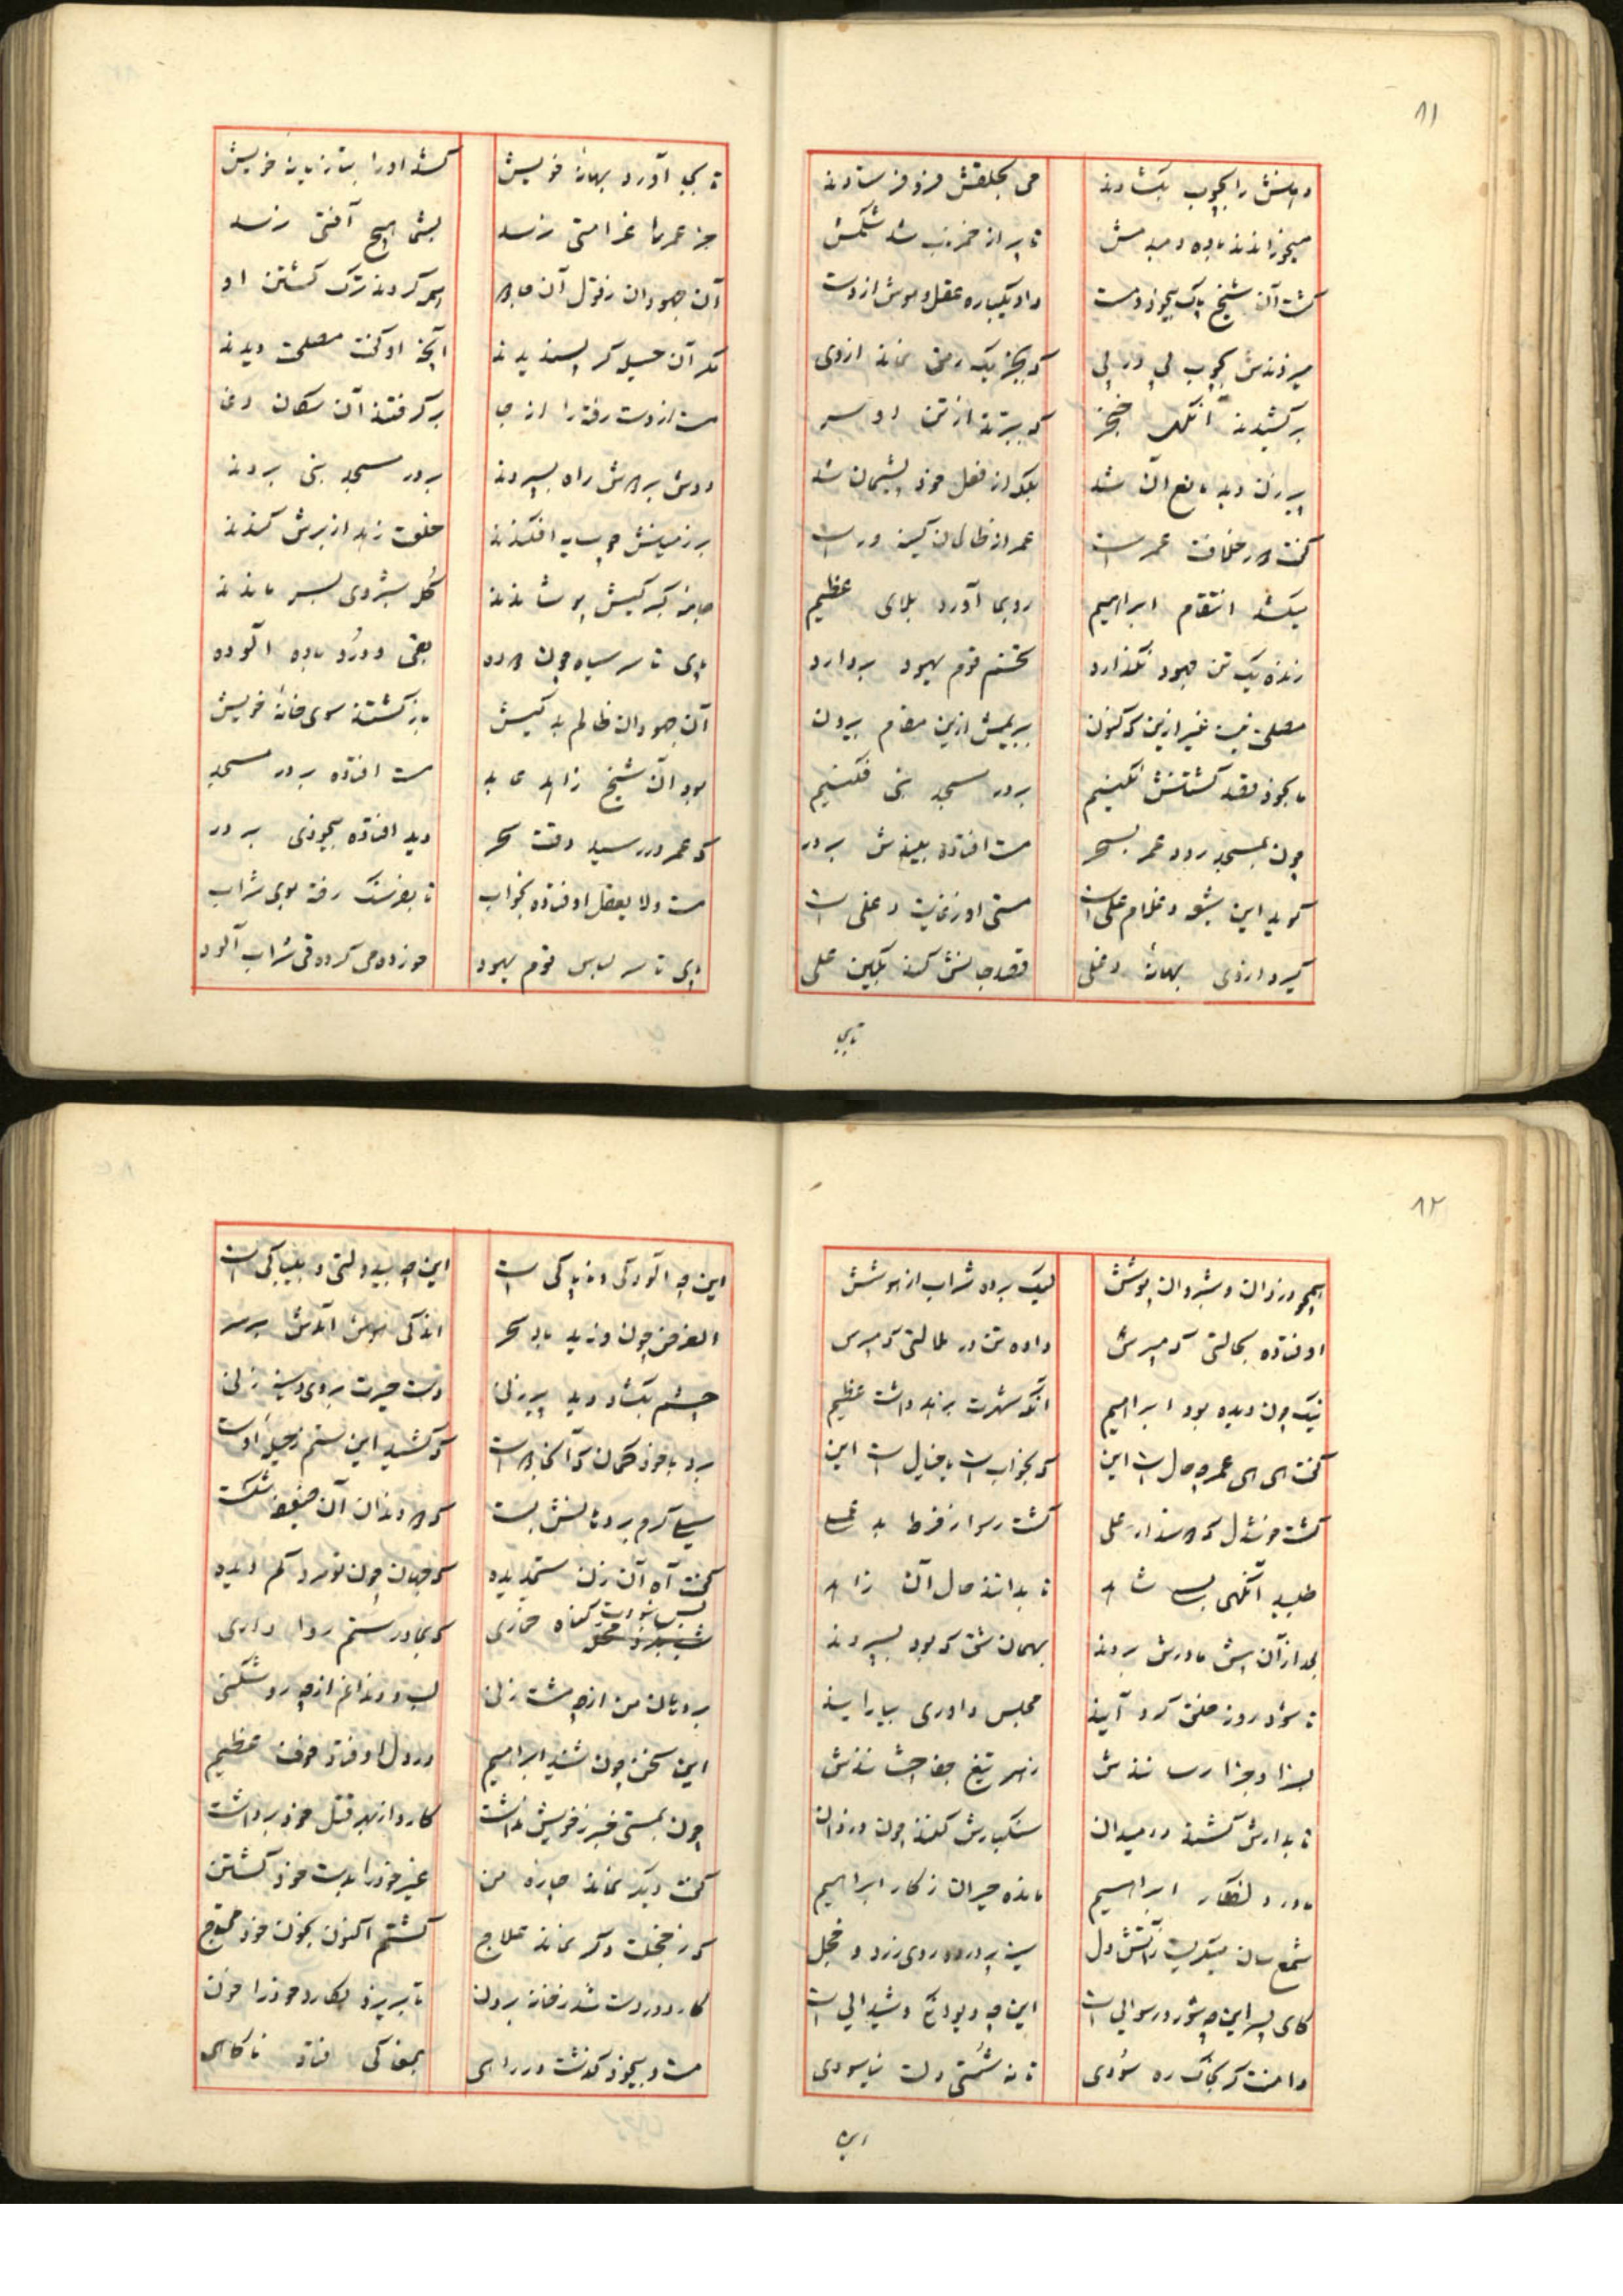 ۸۱
دهنش را بچوب بکشادند می بحلقش فرو فرستادند
میخوراندند باده دمبدمش تا پر از خمر ناب شد شکمش
کشت آن شیخ پاک بیخود و مست داد یکباره عقل و هوش از دست
میزدندش بچوب پی در پی که بجز یک رمق نماند از وی
برکشیدند آنگهی خنجر که ببرند از تن او سر
پیرزن دید مانع آن شد بلکه از فعل خود پشیمان شد
کفت در خلافت عمر است عمر از ظالمان کینه ور است
میکشد انتقام ابراهیم رو بما آورد بلای عظیم
زنده یک تن جهود نکذارد تخم قوم یهود بردارد
مصلحت نیست غیر ازین که کنون ببریمش ازین مقام برون
ما بخود قصد کشتنش نکنیم بر در مسجد نبی فکنیم
چون بمسجد رود عمر بسحر مست افتاده بیندش بر در
کوید این شیعه و غلام علی است مستی او ز غایت دغلی است
کیرد از وی بهانهٔ دغلی قصد جانش کند بکین علی
تا بجای
تا بجای آورد بهانه خویش کشد او را بتازیانه خویش
جز عمر را غرامتی نرسد بشما هیچ آفتی نرسد
آن جهودان ز قول آن جادو همه کردند ترک کشتن او
مکر آن حیله کر پسندیدند آنچه او کفت مصلحت دیدند
مست از دست رفته را از جا برکرفتند آن سکان دغا
دوش بردوش راه بسپردند بر در مسجد نبی بردند
بر زمینش چو سایه افکندند خلعت زهد از برش کندند
جامهٔ کبر کیش پوشاندند کل شبروی بسر ماندند
پای تا سر سیاه چون دوده بقی و درد باده آلوده
آن جهودان ظالم بد کیش باز کشتند سوی خانهٔ خویش
بود آن شیخ زاهد عابد مست افتاده بر در مسجد
که عمر در رسید وقت سحر دید افتاده بیخودی بر در
مست ولا یعقل اوفتاده بخواب تا بفرسنک رفته بوی شراب
پای تا سر لباس قوم یهود خورده می کرده قی شراب آلود
۸۲
همچو دزدان و شبروان پوشش لیک برده شراب از هوشش
اوفتاده بحالتی که مپرس داده تن در ملالتی که مپرس
نیک چون دیده بود ابراهیم آنکه شهرت بزهد داشت عظیم
کفت ای ای عمر چه حال است این که بخوابست یا خیال است این
کشت خوشدل که دوستدار علی کشت رسوا ز فرط بد عملی
طلبید آنکهی بسی شاهد تا بدانند حال آن زاهد
بعد از آن پیش مادرش بردند بهمان شق که بود بسپردند
تا شود روز خلق کرد آیند مجلس داوری بیارایند
بسزا و جزا رسانندش زهر تیغ جفا چشانندش
تا بدارش کشند در میدان سنکسارش کنند چون دزدان
مادر دلفکار ابراهیم مانده حیران ز کار ابراهیم
شمع سان میکریست ز آتش دل سینه پر درد و روی زرد و خجل
کای پسر این چه شور و رسوائی است این چه دیوانکی و شیدائی است
دامنت کر بخاک ره سودی تا نه شستی دلت نیاسودی
این چه
این چه آلودکی و ناپاکی است این چه بیدولتی و بیباکی است
الغرض چون وزید باد سحر اندکی هوش آمدش بر سر
چشم بکشاد و دید پیرزنی دست حیرت بروی و سینه زنی
برد با خود کمان که آنجا دوست که کشید این ستم ز حیلهٔ اوست
سیلی کرم بر دهانش بست که دو دندان آن ضعیفه شکست
کفت آه آن زن ستمدیده که جهان چون تو مرد کم دیده
بس نبودت کناه خماری که بمادر ستم روا داری
بر دهان من از چه مشت زنی لب و دندانم از چه رو شکنی
این سخن چون شنید ابراهیم در دل اوفتاد خوف عظیم
چون بمستی خبر ز خویش نداشت کارد از بهر قتل خود برداشت
کفت دیکر نماند چاره من غیر خود را بدست خود کشتن
که ز خجلت دکر نماند علاج کشتم اکنون بخون خود محتاج
کارد در دست شد ز خانه برون تا بریزد بکارد خود را خون
مست و بیخود کذشت در راهی بمغاکی فتاد ناکاهی